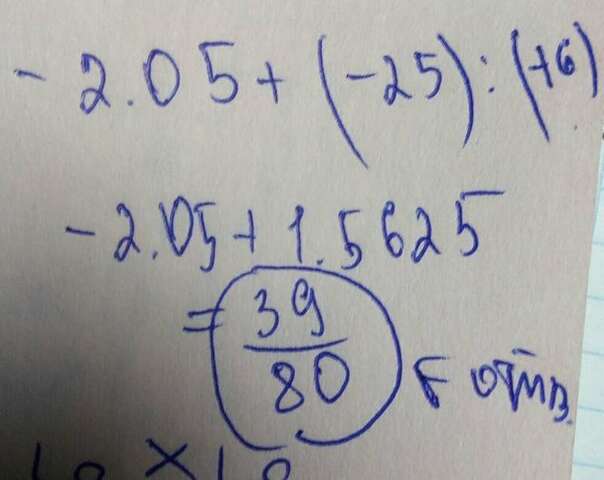 - 2.05 + (-25) : (-16)
- 2.05 + 1.5625
= 39
80